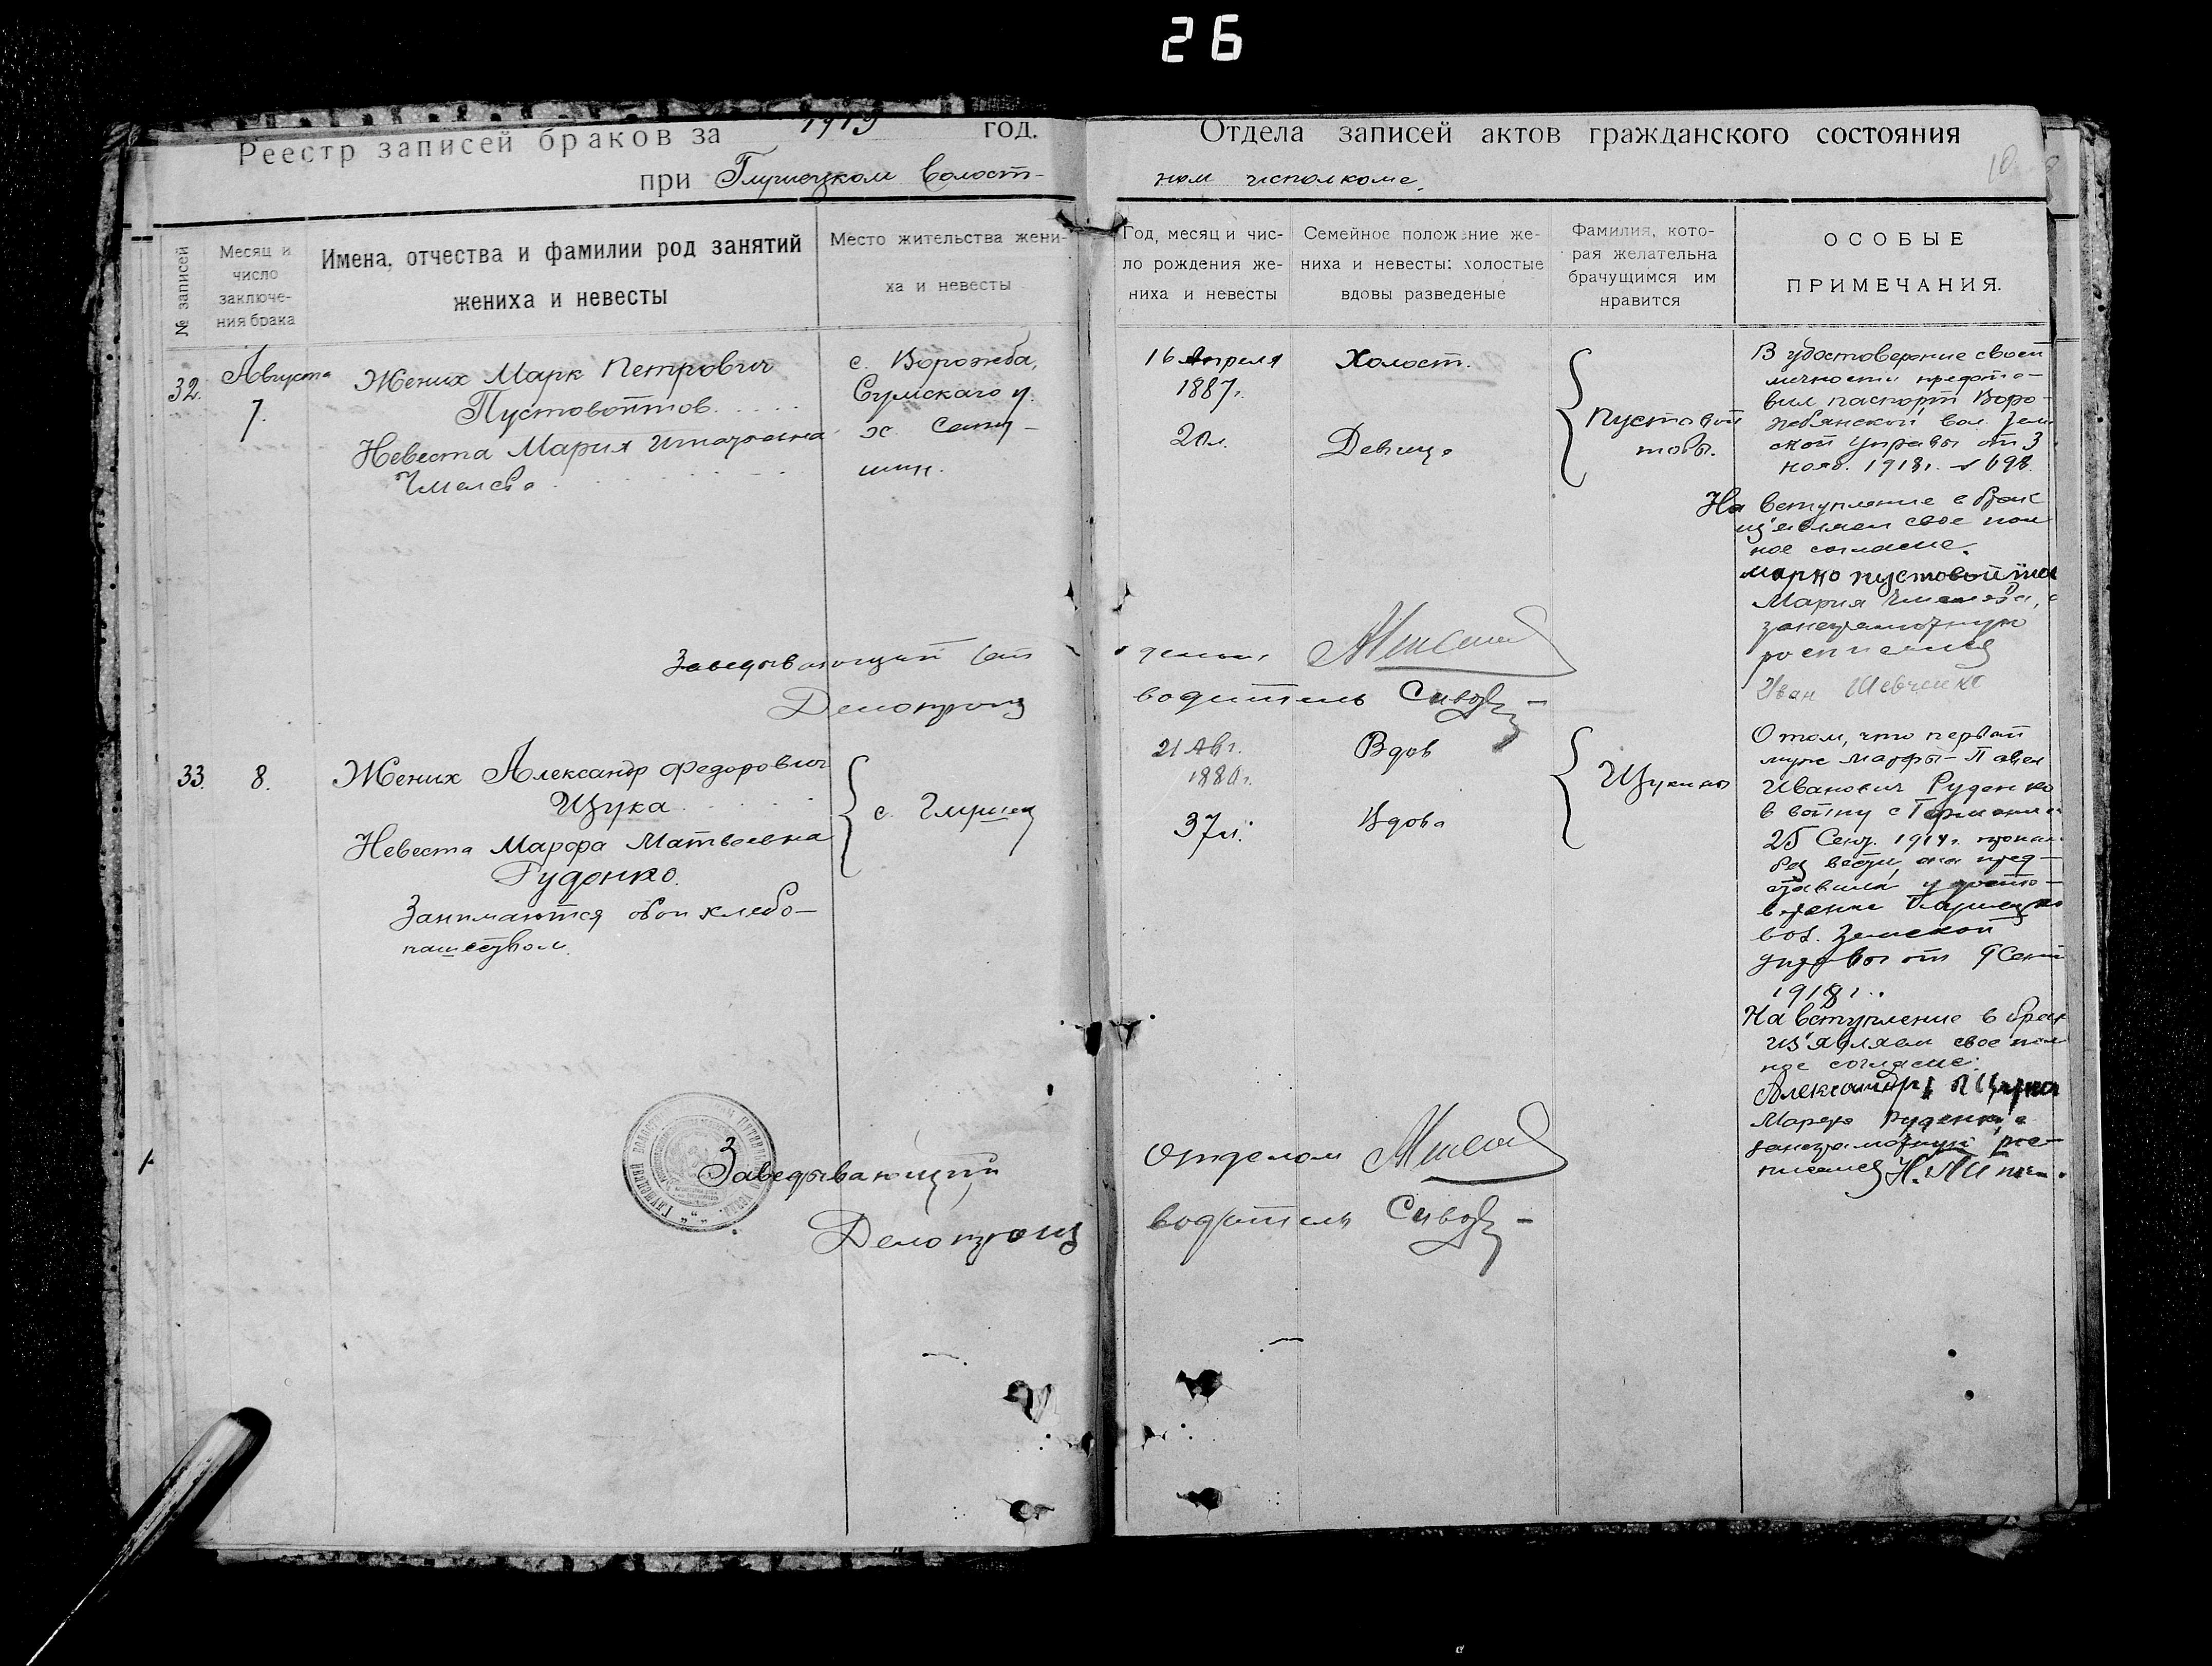 26
Реестр записей браков за 1919 год.
при Глушецком Волост-
Отдела записей актов гражданского состояния
ном исполкоме.
10
№ записей
Месяц и
число
заключе-
ния брака
Имена, отчества и фамилии род занятий
жениха и невесты
Место жительства жени-
ха и невесты
Год, месяц и чис-
ло рождения же-
ниха и невесты
Семейное положение же-
ниха и невесты: холостые
вдовы разведеные
Фамилия, кото-
рая желательна
брачущимся им
нравится
ОСОБЫЕ
ПРИМЕЧАНИЯ.
32.
Августа
7.
Жених Марк Петрович
Пустовойтов.
Невеста Мария
с. Ворожба,
Сумскаго у.
х.
16 Апреля
1887 г.
20 л.
Холост.
Девица
Пустовой
товы.
В удостоверение своей
личности предста-
вил паспорт Воро-
жбянской вол. Зем
ской Управы от 3
нояб. 1918 г. № 698.
На вступление в брак
из'являем свое пол
ное согласие.
марко пустовойтов
Мария
за неграмотную
росписался
Иван Шевченко
Заведывающий От
делом
Делопроиз
водитель
33.
8.
Жених Александр Федорович
Щука
Невеста Марфа Матвеевна
Руденко.
Занимаются обои хлебо-
пашеством.
с. Глушец
21 Авг.
1880 г.
37 л.
Вдов
Вдова
Щукины
О том, что первый
муж Марфы - Павел
Иванович Руденко
в войну с Германией
25 Сент. 1914 г. пропал
без вести, она пред-
ставила удосто-
верение Глушецко
вол. Земской
управы от 9 Сент
1918 г.
На вступление в брак
из'являем свое пол
ное согласие:
Александр Щука
Марфа Руденко, а
за неграмотную рос-
писался
Заведывающий
Отделом
Делопроиз
водитель